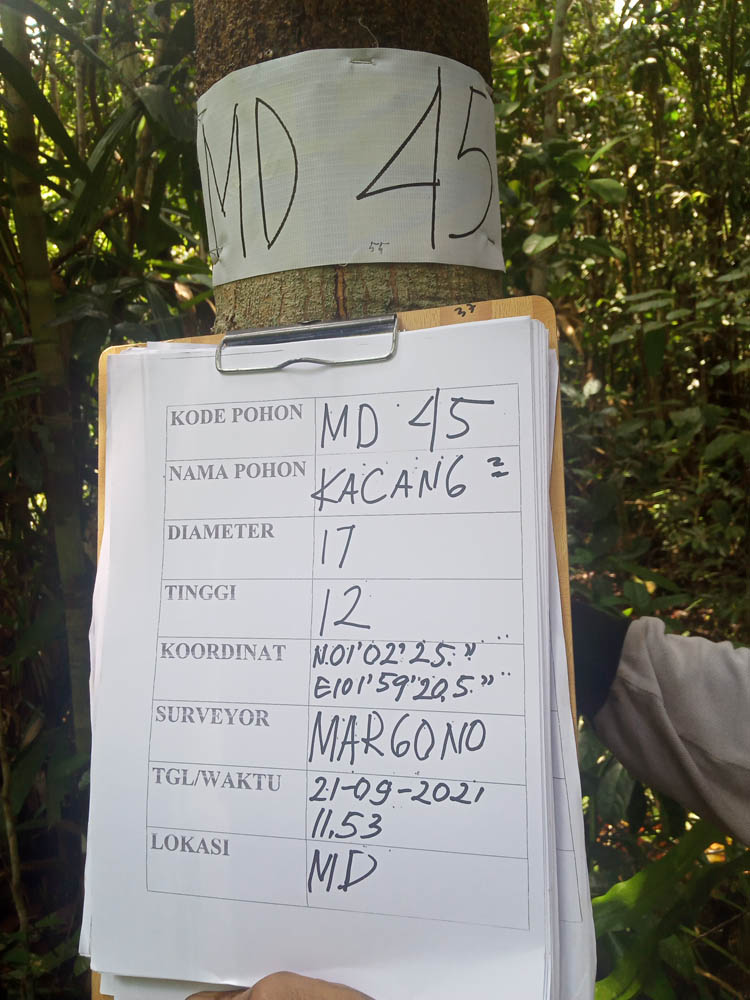 MD 45
KODE POHON MD 45
NAMA POHON KACANG ²
DIAMETER 17
TINGGI 12
KOORDINAT N.01'02'25."
E101'59'20,5"
SURVEYOR MARGONO
TGL/WAKTU 21-09-2021
11.53
LOKASI MD